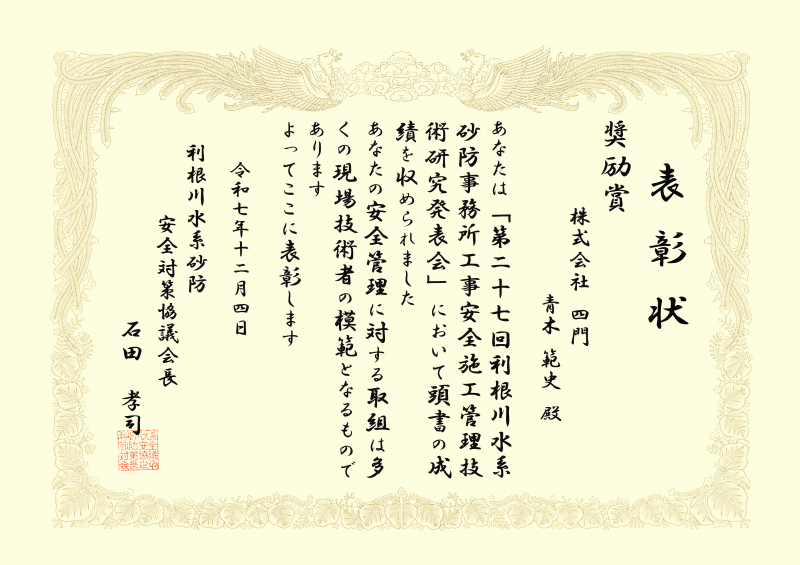 表彰状
奨励賞
株式会社 四門
青木 範史 殿
あなたは「第二十七回利根川水系
砂防事務所工事安全施工管理技
術研究発表会」において頭書の成
績を収められました
あなたの安全管理に対する取組は多
くの現場技術者の模範となるもので
あります
よってここに表彰します
令和七年十二月四日
利根川水系砂防
安全対策協議会長
石田 孝司